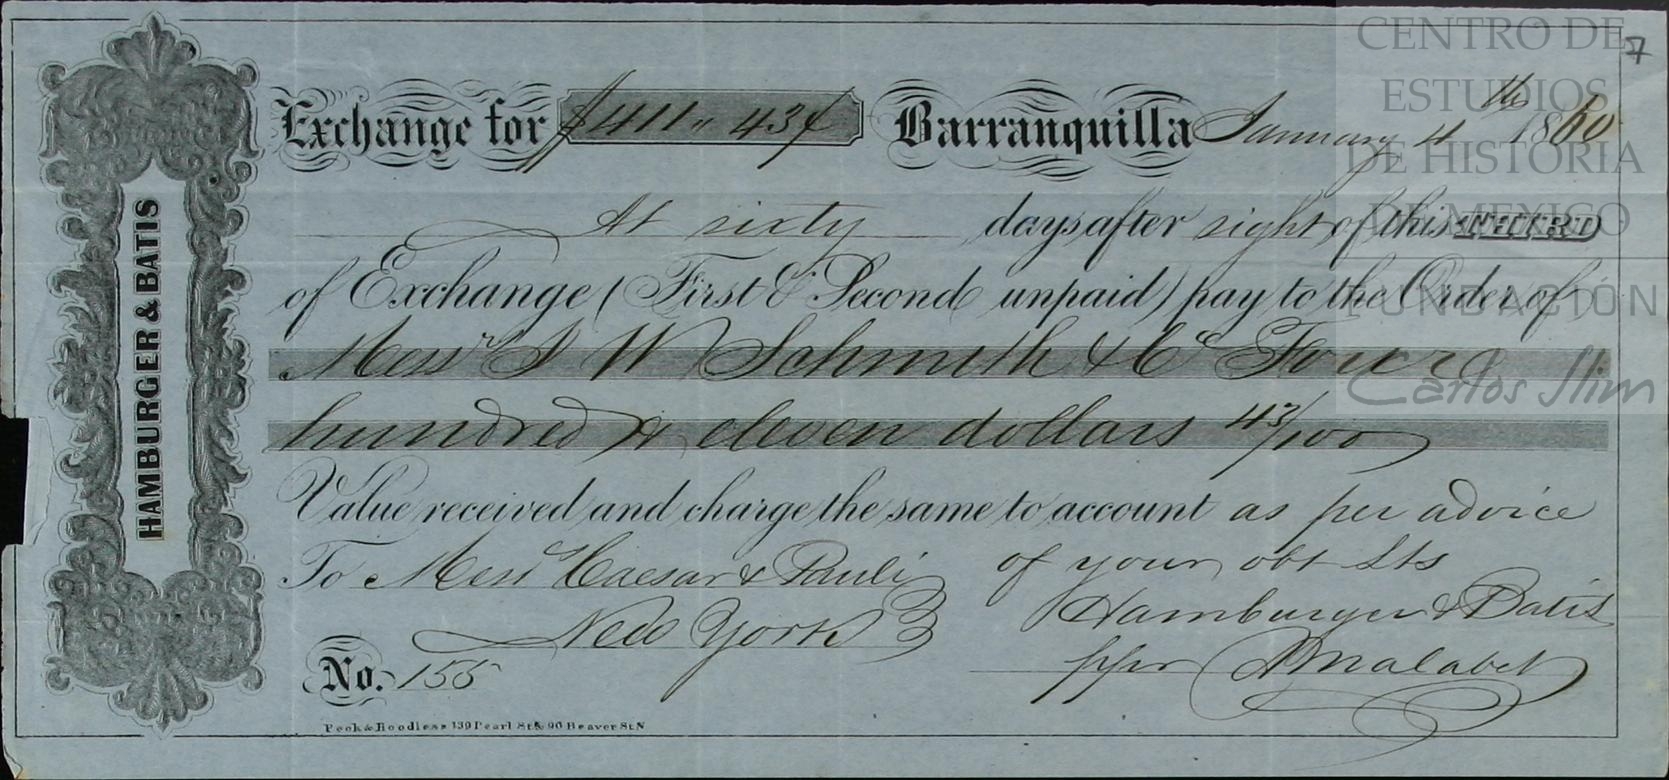 CENTRO DE
ESTUDIOS
DE HISTORIA
DE MEXICO
FUNDACIÓN
Carlos Slim
7
HAMBURGER & BATIS
Exchange for $411 " 43 ¢ Barranquilla January 4 th 1860
At sixty days after sight of this THIRD
of Exchange (First & Second unpaid) pay to the Order of
Mess rs J W Schmith & Co Four
hundred & eleven dollars 43/100
Value received and charge the same to account as per advice
To Mess rs Caesar & Pauli of your obt Sts
New York Hamburger & Batis
No. 155 ppr Malabet
Peck & Hoodless 139 Pearl St. & 96 Beaver St. N